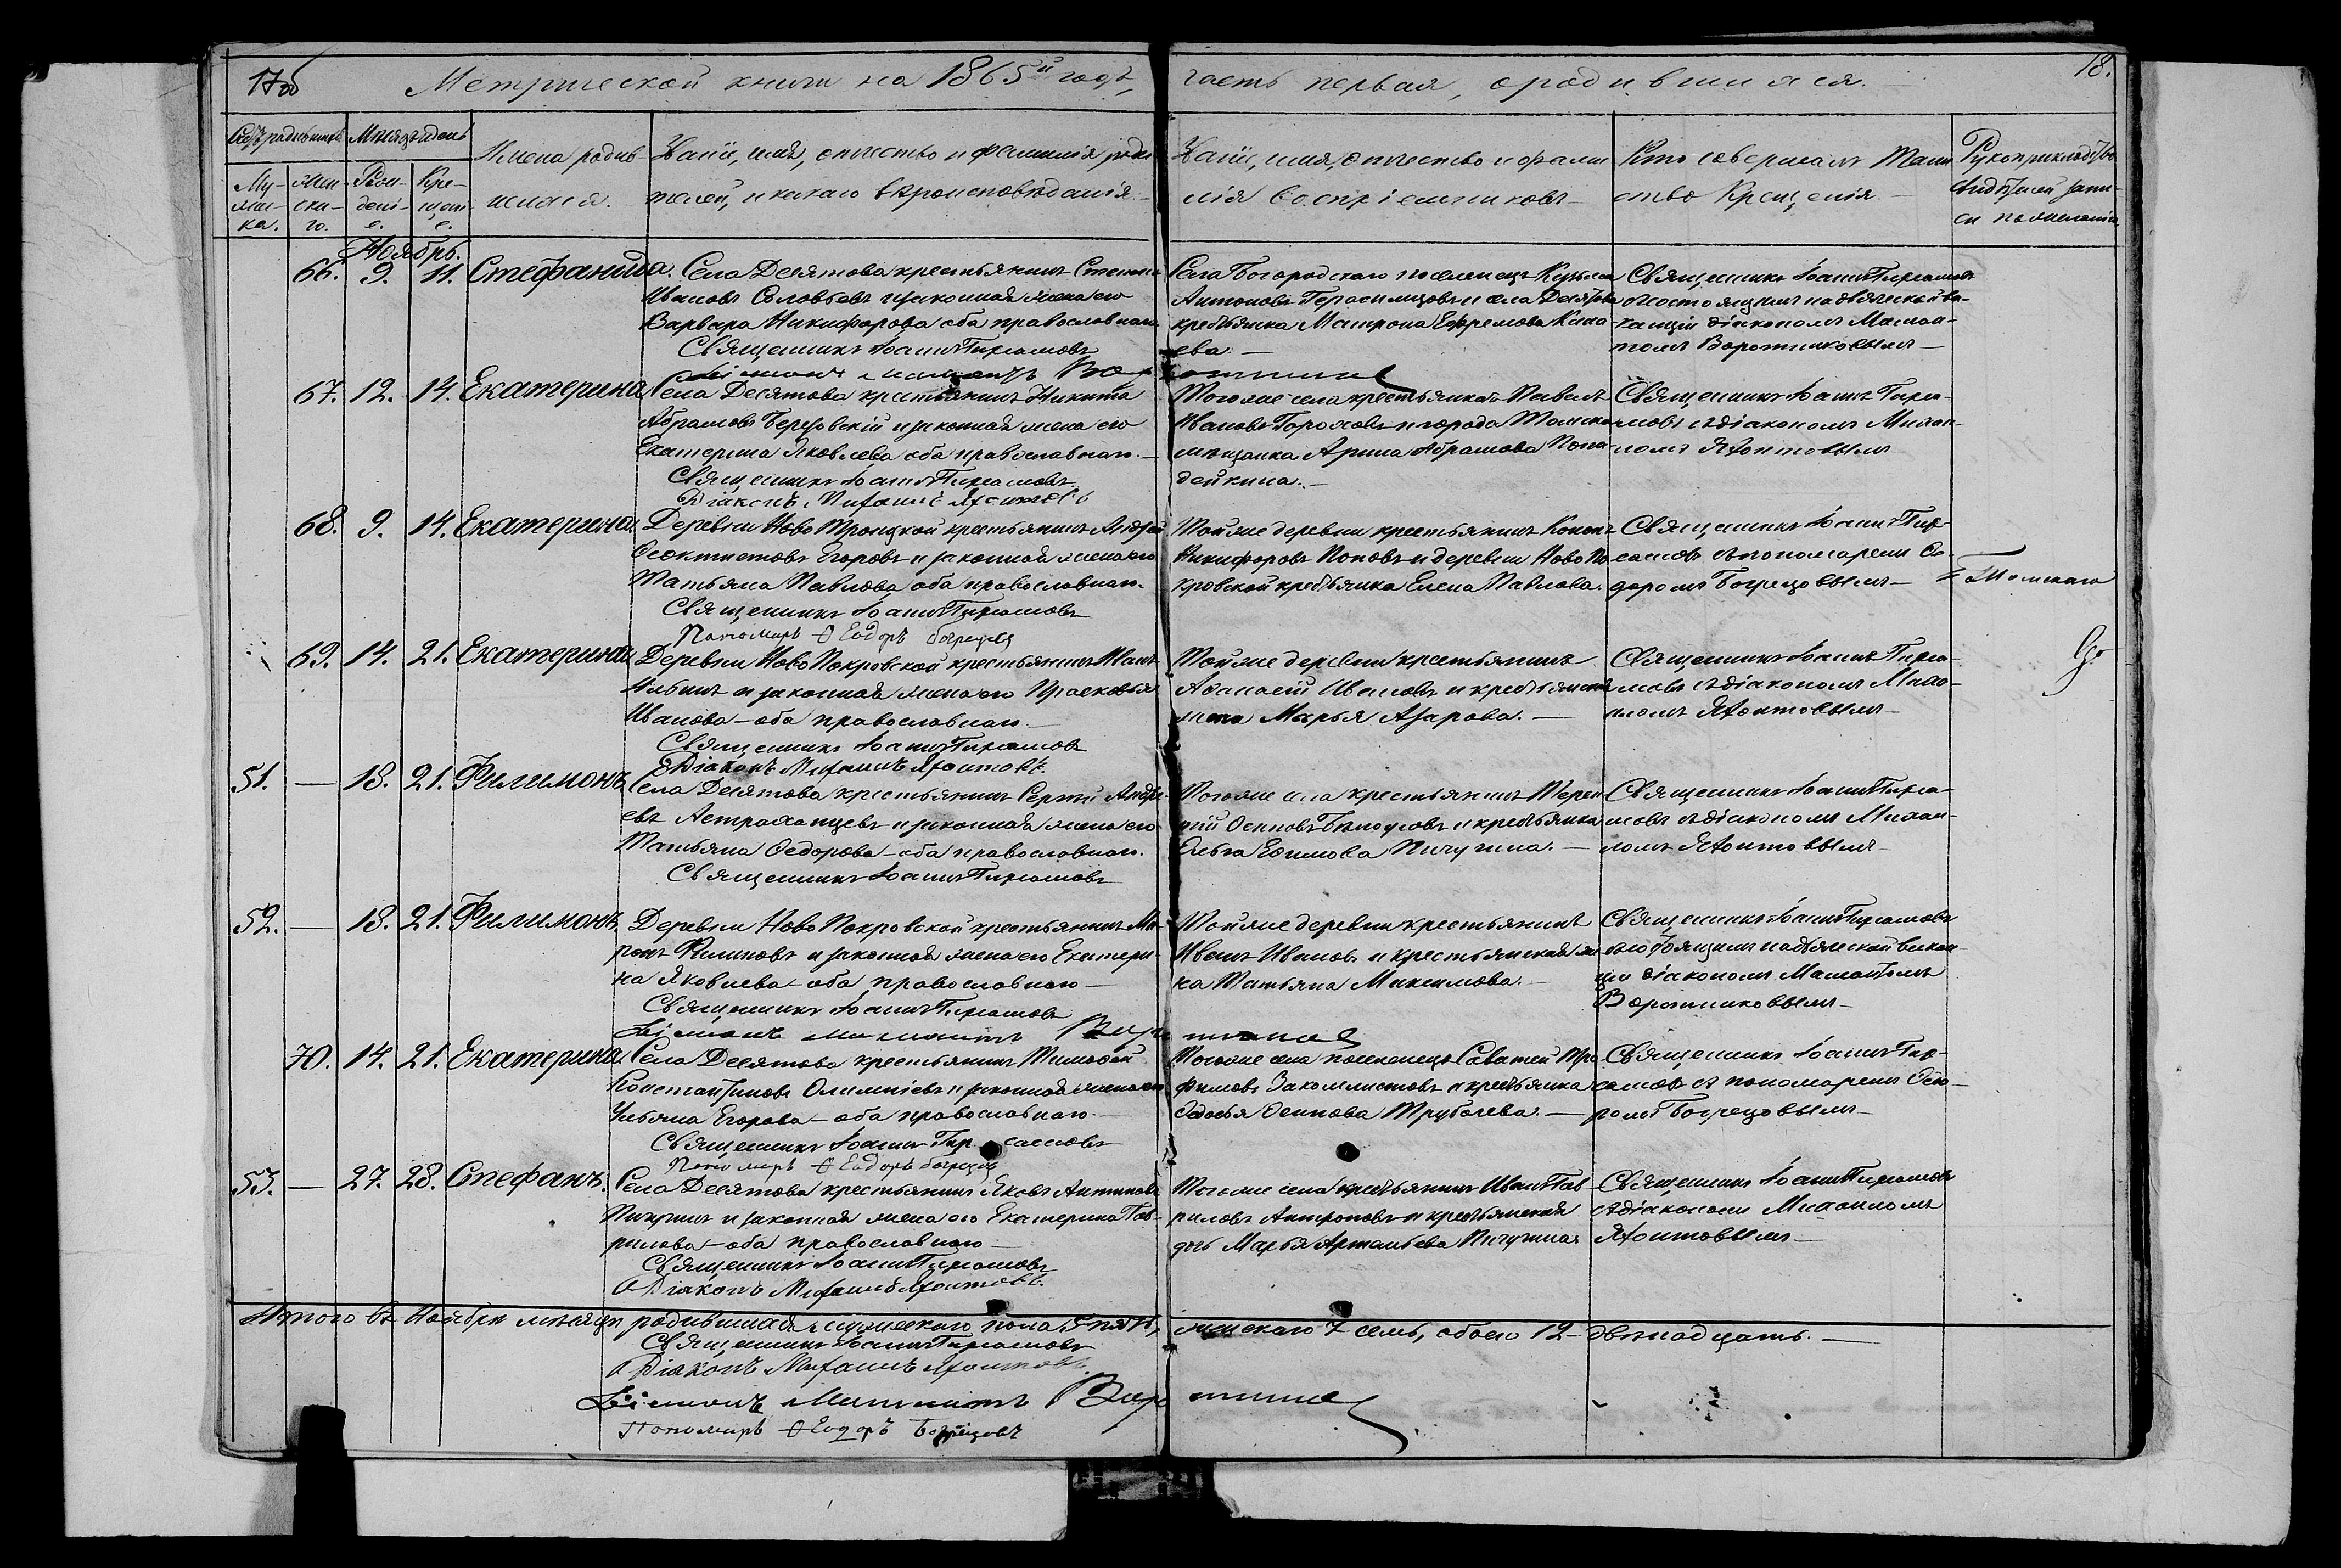 17об
Метрической книги на 1865й годъ, часть первая, о родившихся.
18.
Счетъ родившихся
Мѣсяцъ и день
Имена родившихся.
Званіе, имя, отчество и фамилія родителей, и какого вѣроисповѣданія.
Званіе, имя, отчество и фамилія воспріемниковъ
Кто совершалъ Таинство Крещенія
Рукоприкладство свидѣтелей записи по желанію
Мужска.
Женскаго.
Рожденіе.
Крещеніе.
Ноябрь.
66. 9. 11. Стефанида.
Села Десятова крестьянинъ Степанъ
Ивановъ Соловьевъ и законная жена его
Варвара Никифорова оба православнаго
Священникъ Іоаннъ
Села Богородскаго поселенецъ Кузьма
Антоновъ Герасимовъ и села Десятова
крестьянка Матрона Ефремова
ева.
Священникъ Іоаннъ
состоящимъ на дьяческой ва-
канціи діакономъ Мамон-
томъ Воротниковымъ
67. 12. 14. Екатерина
Села Десятова крестьянинъ Никита
Абрамовъ Березовскій и законная жена его
Екатерина Яковлева оба православнаго.
Священникъ Іоаннъ
Діаконъ Михаилъ Яхонтовъ
Того же села крестьянинъ Павелъ
Ивановъ Гороховъ и города Томска
мѣщанка Арина Абрамова Попа-
дейкина.
Священникъ Іоаннъ
съ діакономъ Михаи-
ломъ Яхонтовымъ
68. 9. 14. Екатерина.
Деревни Ново Троицкой крестьянинъ Андрей
Феоктистовъ Егоровъ и законная жена его
Татьяна Павлова оба православнаго.
Священникъ Іоаннъ
Пономарь Ѳеодоръ
Той же деревни крестьянинъ Кононъ
Никифоровъ Поповъ и деревни Ново По-
кровской крестьянка Елена Павлова.
Священникъ Іоаннъ
съ пономаремъ Ѳе-
доромъ
Томскаго
69. 14. 21. Екатерина
Деревни Ново Покровской крестьянинъ Иванъ
и законная жена его Прасковья
Иванова - оба православнаго.
Священникъ Іоаннъ
Діаконъ Михаилъ Яхонтовъ.
Той же деревни крестьянинъ
Аѳанасій Ивановъ и крестьянская
жена Марья Азарова.
Священникъ Іоаннъ
съ діакономъ Михаи-
ломъ Яхонтовымъ
51. — 18. 21. Филимонъ
Села Десятова крестьянинъ Сергѣй Андре-
евъ Астраханцевъ и законная жена его
Татьяна Федорова - оба православнаго.
Священникъ Іоаннъ
Того же села крестьянинъ Терен-
тій Осиповъ Бѣлоусовъ и крестьянка
Ольга Ефимова Пичугина.
Священникъ Іоаннъ
съ діакономъ Михаи-
ломъ Яхонтовымъ
52. — 18. 21. Филимонъ.
Деревни Ново Покровской крестьянинъ Ми-
ронъ Филиповъ и законная жена его Екатери-
на Яковлева - оба православнаго
Священникъ Іоаннъ
Той же деревни крестьянинъ
Иванъ Ивановъ и крестьянская же-
на Татьяна Максимова.
Священникъ Іоаннъ
состоящимъ на дьяческой вакан-
ціи діакономъ Мамонтомъ
Воротниковымъ
70. 14. 21. Екатерина.
Села Десятова крестьянинъ Тимофей
Константиновъ Олимпіевъ и законная жена его
Ульяна Егорова - оба православнаго.
Священникъ Іоаннъ
Пономарь Ѳеодоръ
Того же села поселенецъ Саватей Тро-
фимовъ и крестьянка
Федосья Осипова Трубачева.
Священникъ Іоаннъ
съ пономаремъ Ѳедо-
ромъ
53. — 27. 28. Стефанъ.
Села Десятова крестьянинъ Яковъ Антиповъ
Пичугинъ и законная жена его Екатерина Гав-
рилова - оба православнаго
Священникъ Іоаннъ
Діаконъ Михаилъ Яхонтовъ.
Того же села крестьянинъ Иванъ Гав-
риловъ Антроповъ и крестьянская
дочь Марья Артемьева Пичугина
Священникъ Іоаннъ
съ діакономъ Михаиломъ
Яхонтовымъ
Итого въ Ноябрѣ мѣсяцѣ родившихся мужескаго пола 5 пять, женскаго 7 семь, обоего 12 двѣнадцать.
Священникъ Іоаннъ
Діаконъ Михаилъ Яхонтовъ.
Діаконъ Мамонтъ Воротниковъ
Пономарь Ѳеодоръ